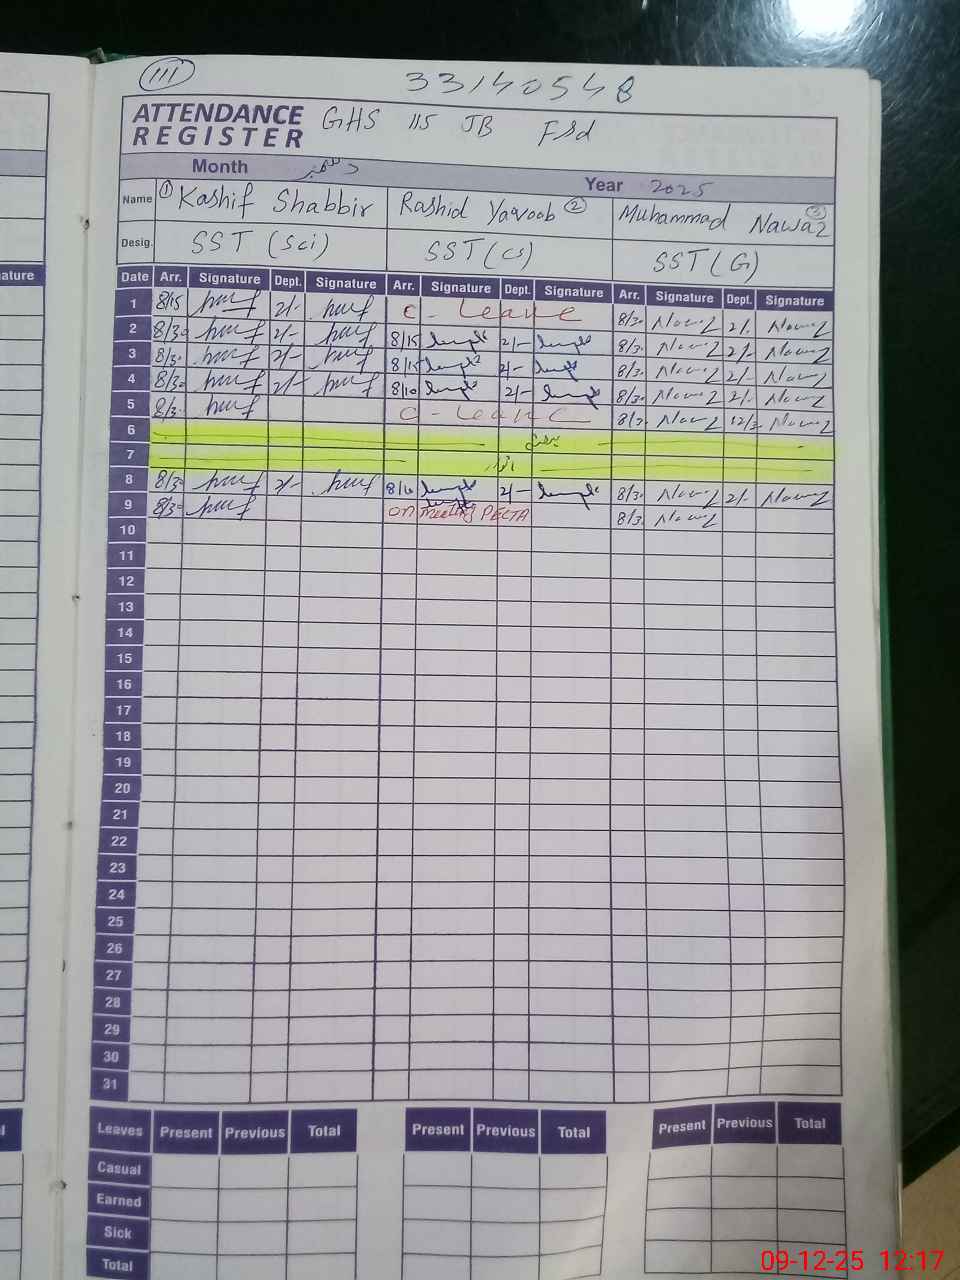 111
33140548
ATTENDANCE REGISTER GHS 115 JB Fsd
Month دسمبر Year 2025
Name ① Kashif Shabbir Rashid Yaqoob ② Muhammad Nawaz ③
Desig. SST (Sci) SST (CS) SST (G)
ature
Date Arr. Signature Dept. Signature Arr. Signature Dept. Signature Arr. Signature Dept. Signature
1 8/15 2/- C - Leave 8/30 Nawaz 2/- Nawaz
2 8/30 2/- 8/15 2/- 8/30 Nawaz 2/- Nawaz
3 8/30 2/- 8/15 2/- 8/30 Nawaz 2/- Nawaz
4 8/30 2/- 8/10 2/- 8/30 Nawaz 2/- Nawaz
5 8/30 C - Leave 8/30 Nawaz 12/3 Nawaz
6
7 اتوار
8 8/30 2/- 8/10 2/- 8/30 Nawaz 2/- Nawaz
9 8/30 on meeting PECTA 8/30 Nawaz
10
11
12
13
14
15
16
17
18
19
20
21
22
23
24
25
26
27
28
29
30
31
Leaves Present Previous Total Present Previous Total Present Previous Total
Casual
Earned
Sick
Total
09-12-25 12:17